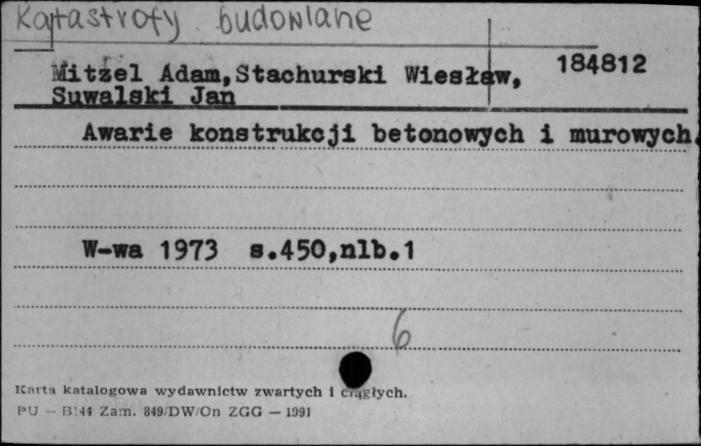 Katastrofy budowlane
Mitzel Adam,Stachurski Wiesław, 184812
Suwalski Jan
Awarie konstrukcji betonowych i murowych.
W-wa 1973 s.450,nlb.1
6
Karta katalogowa wydawnictw zwartych i ciągłych.
PU — B144 Zam. 849/DW/On ZGG — 1991